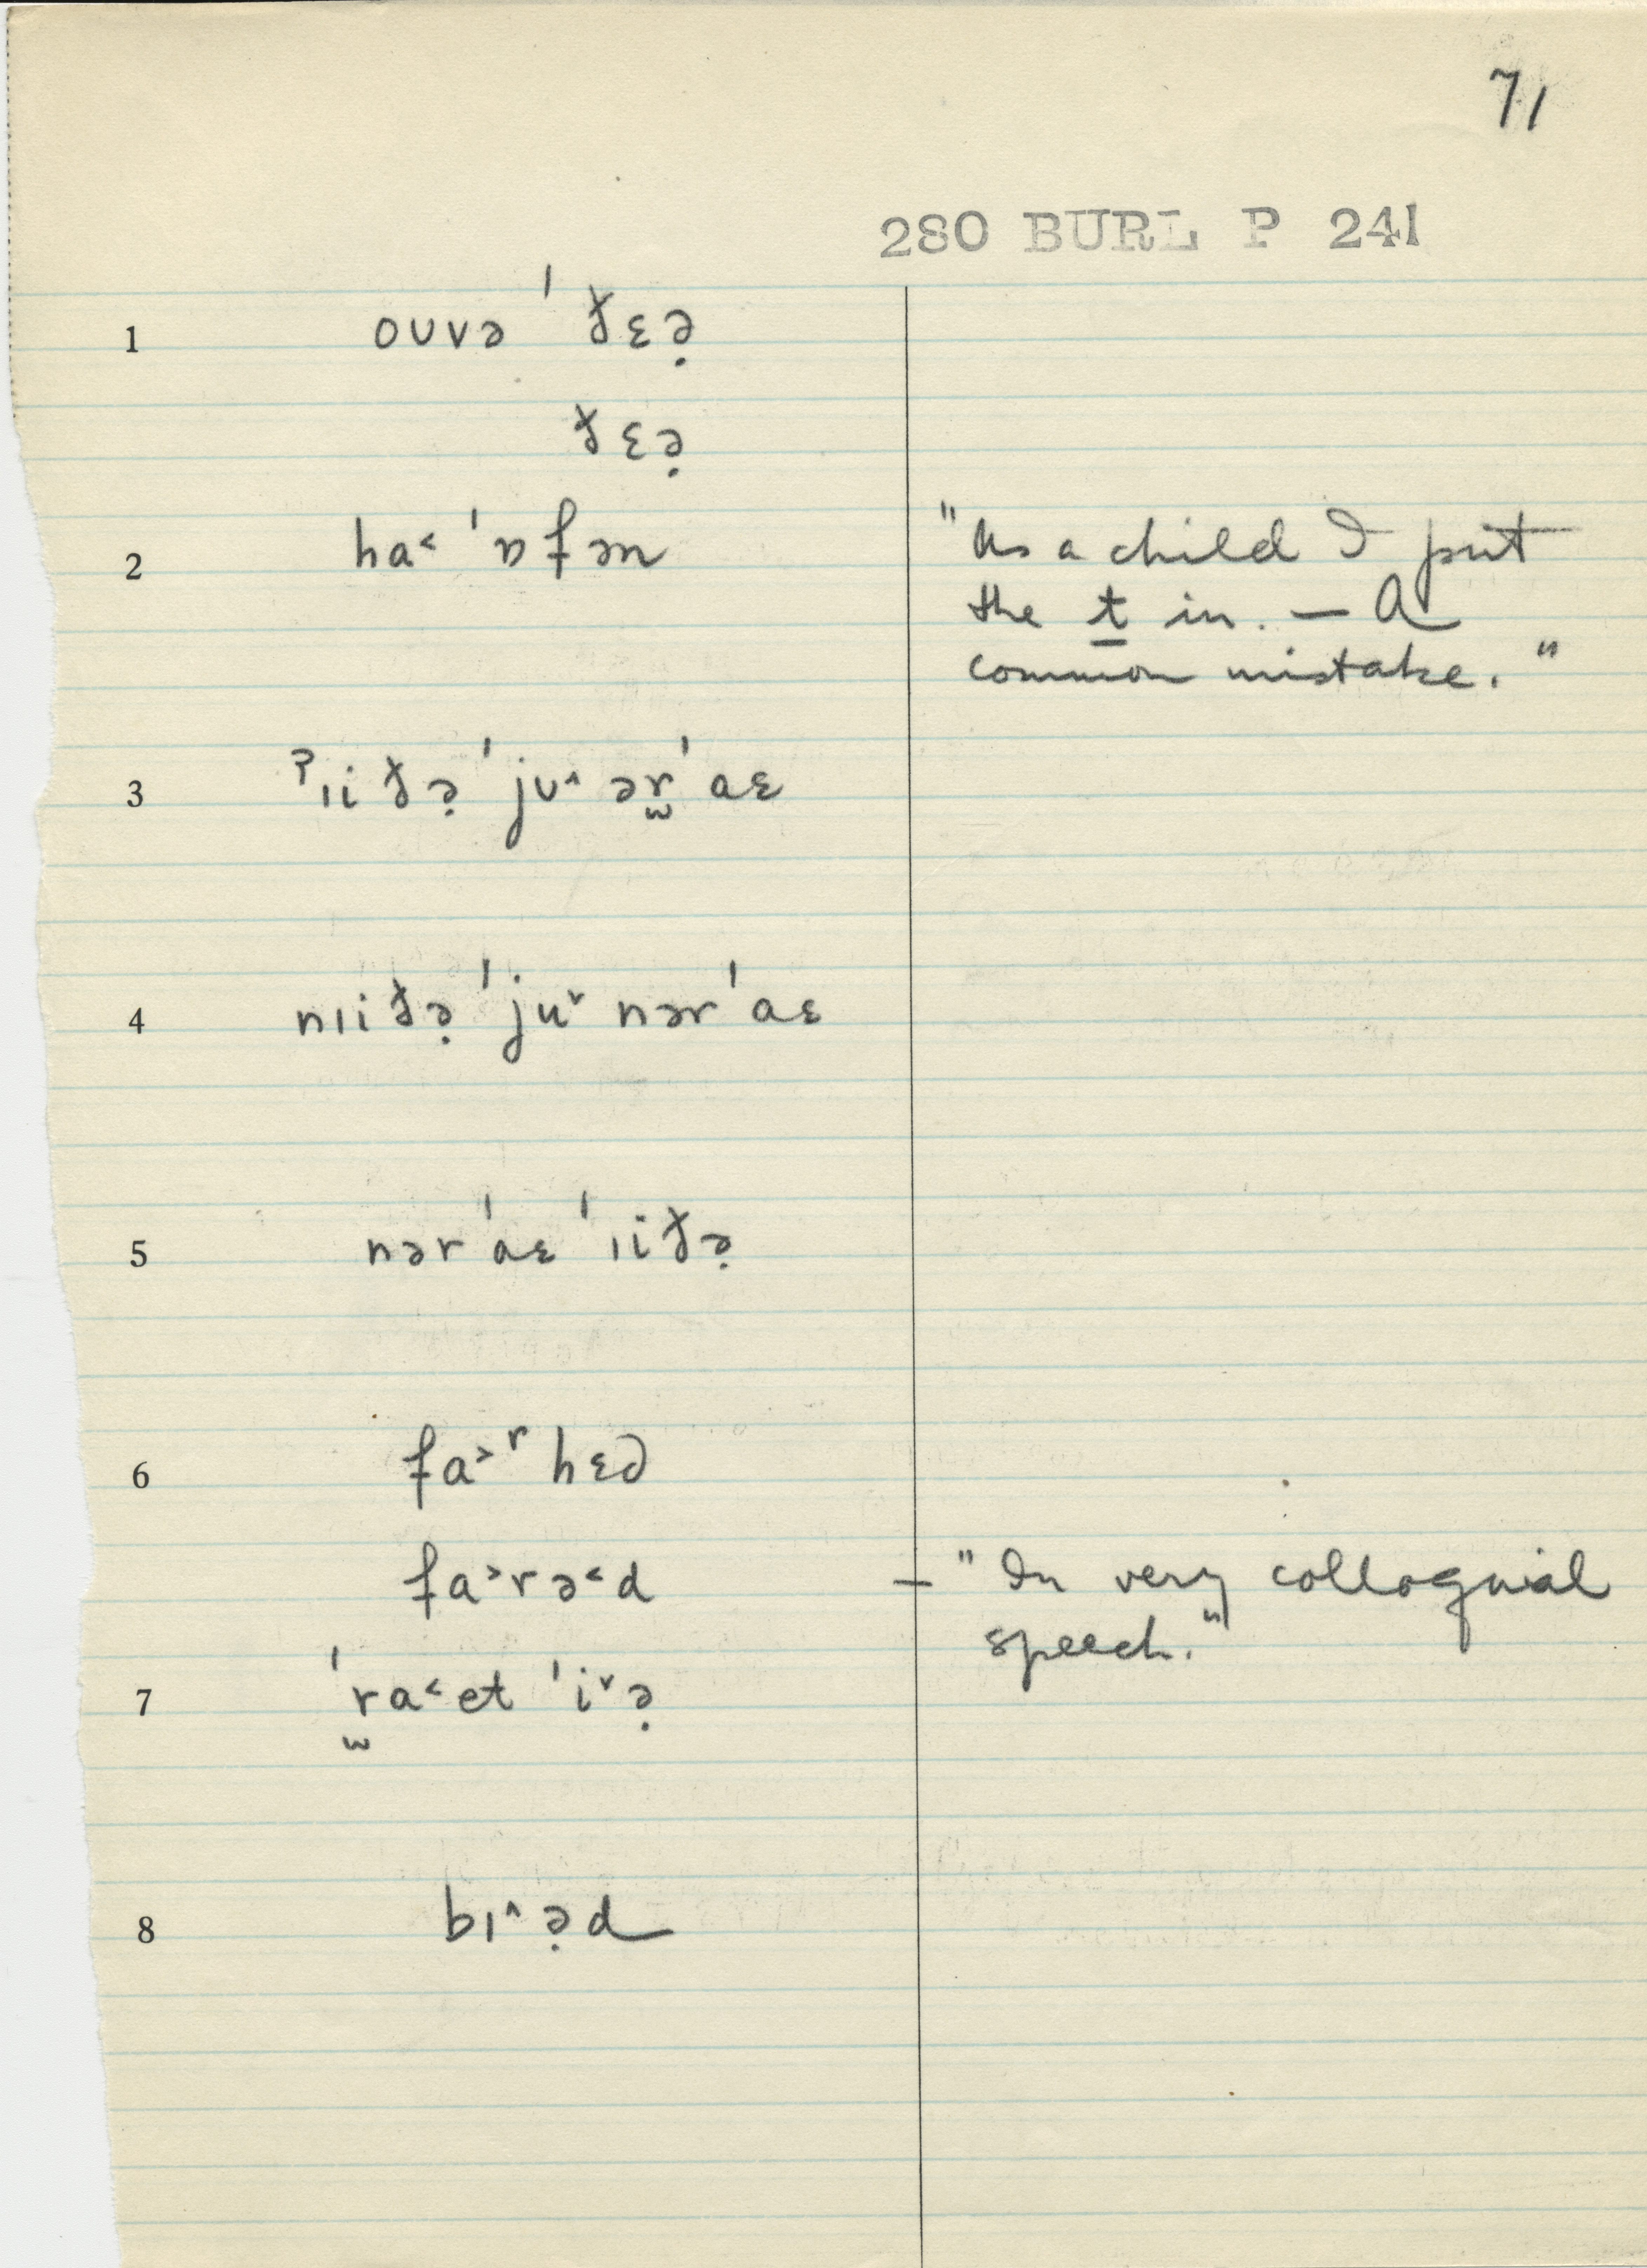 71
280 BURL P 241
1 oʊvə ˈðɛə̣
ðɛə̣
2 ha˂ ˈɒfən "As a child I put
the t in. — A
common mistake."
3 ʔɪiðə̣ ˈjʊ˄ ər̫ ˈaɛ
4 nɪiðə̣ ˈju˅ nər ˈaɛ
5 nər ˈaɛ ˈɪiðə̣
6 fa˃ʳ hɛd
fa˃rə˂d — "In very colloquial
speech."
7 ˈr̫a˂et ˈi˅ə̣
8 bɪ˄ə̣d